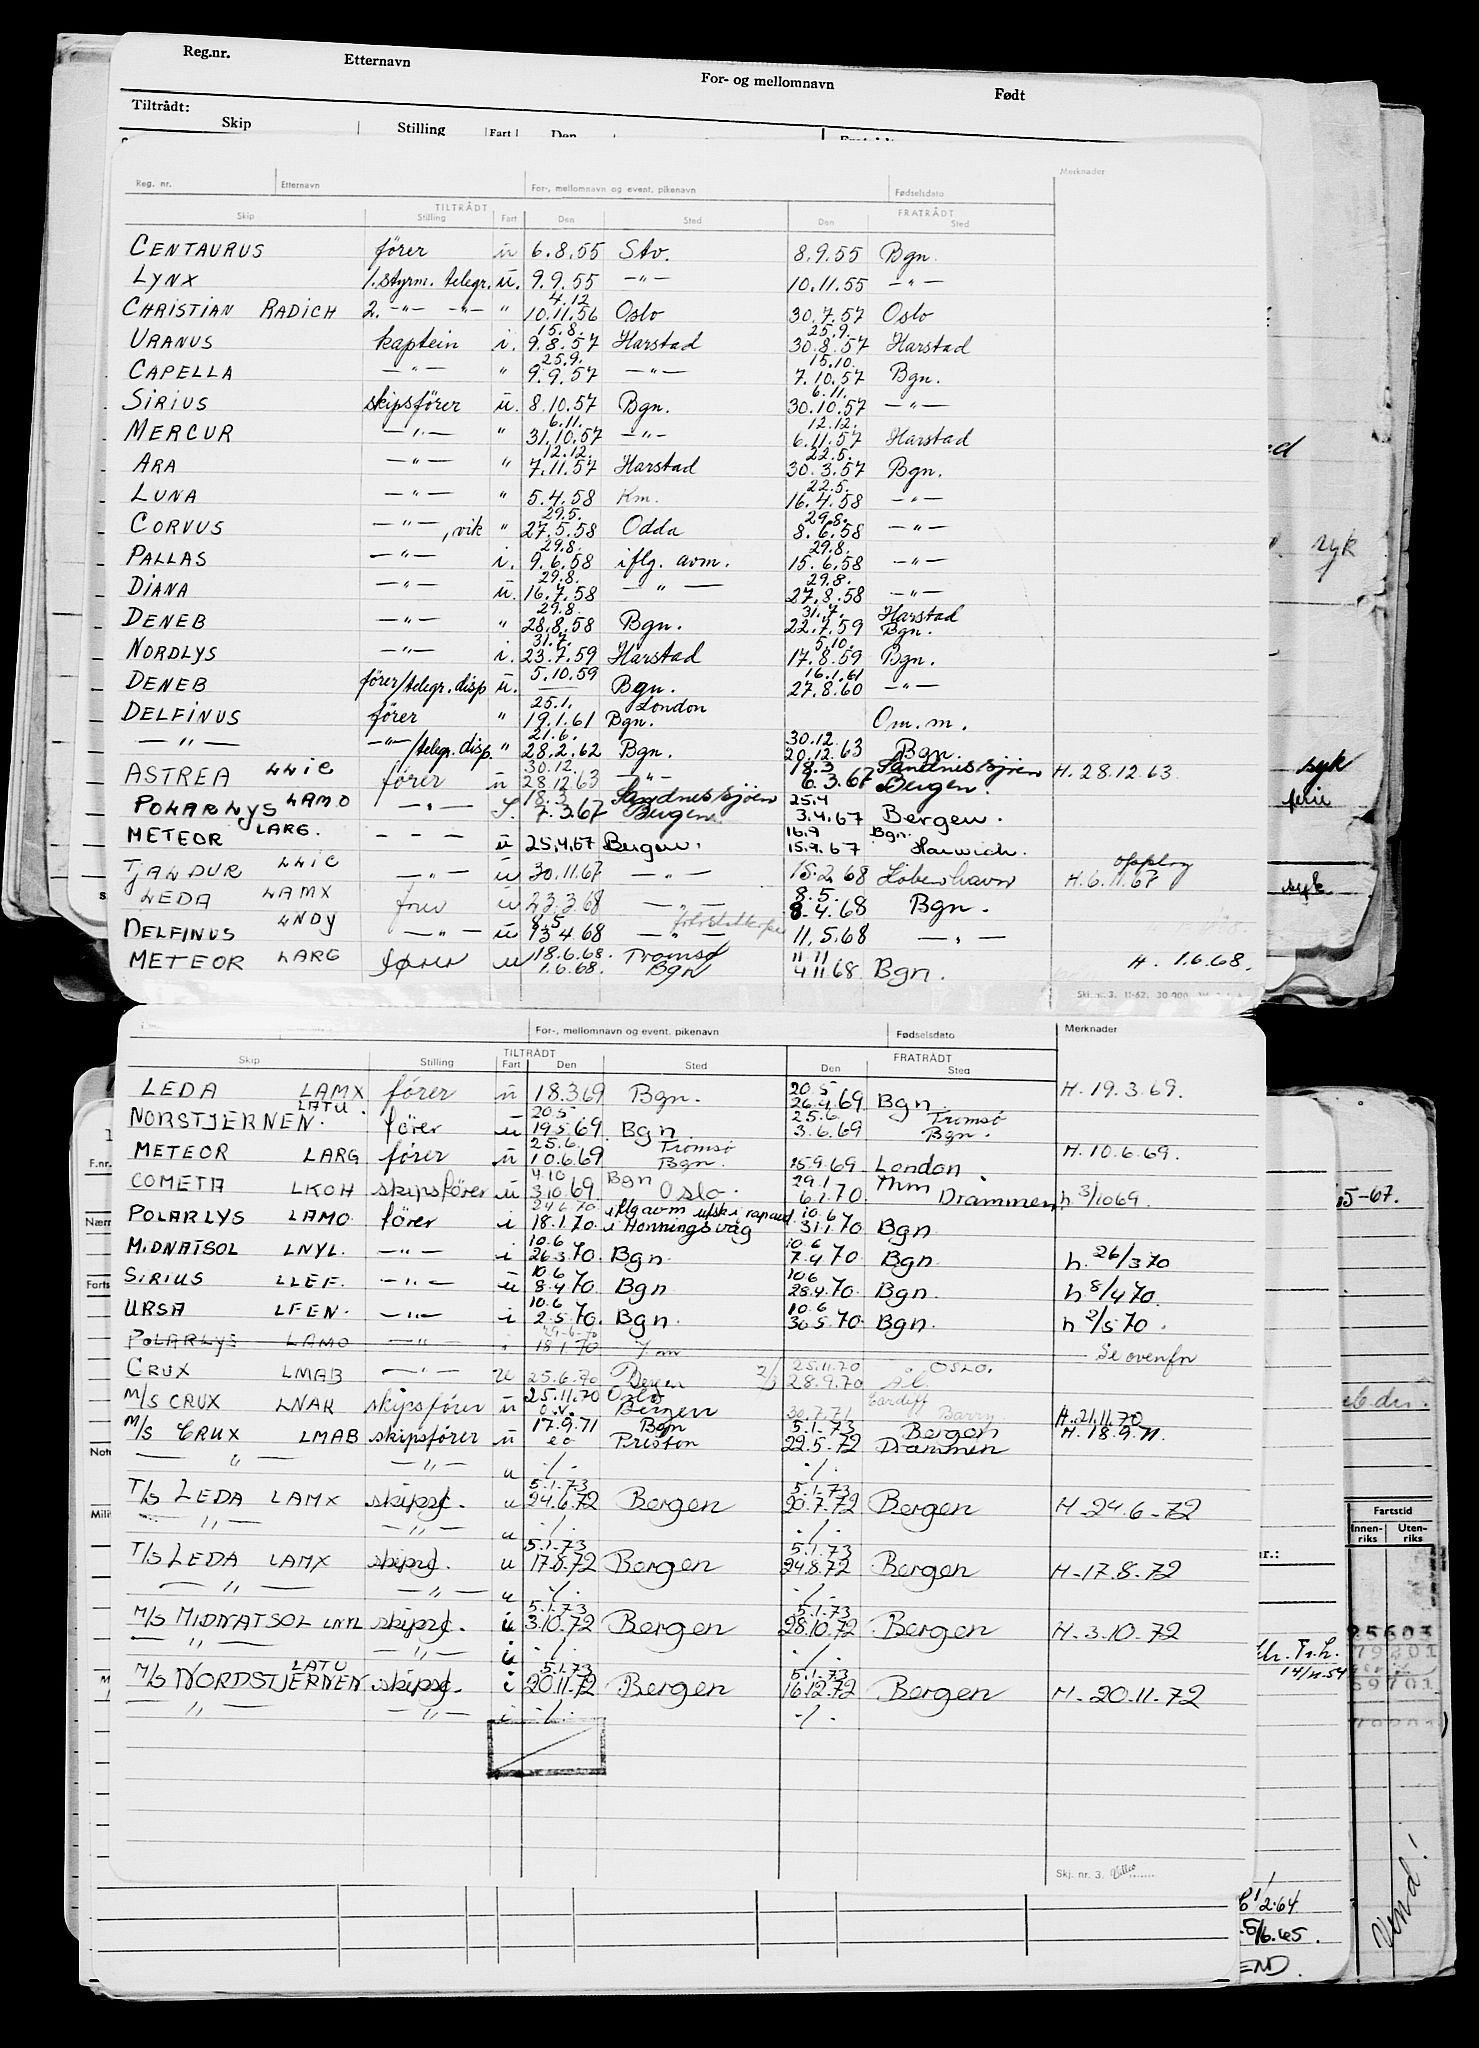 Reg.nr. Etternavn For- og mellomnavn Født
Tiltrådt:
Skip Stilling Fart Den
Reg. nr. Etternavn For-, mellomnavn og event. pikenavn Fødselsdato Merknader
TILTRÅDT FRATRÅDT
Skip Stilling Fart Den Sted Den Sted
CENTAURUS fører u 6.8.55 Stv. 8.9.55 Bgn.
LYNX 1. styrm. telegr. u. 9.9.55 —"— 10.11.55 —"—
4.12
CHRISTIAN RADICH 2. —"— —"— " 10.11.56 Oslo 30.7.57 Oslo
15.8. 25.9.
URANUS kaptein i. 9.8.57 Harstad 30.8.57 Harstad
25.9. 15.10.
CAPELLA —"— " 9.9.57 —"— 7.10.57 Bgn.
6.11.
SIRIUS skipsfører u. 8.10.57 Bgn. 30.10.57 —"—
6.11. 12.12.
MERCUR —"— " 31.10.57 —"— 6.11.57 Harstad
12.12. 22.5.
ARA —"— " 7.11.57 Harstad 30.3.57 Bgn.
22.5.
LUNA —"— " 5.4.58 Km. 16.4.58 —"—
29.5. 29.8.
CORVUS —"—, vik " 27.5.58 Odda 8.6.58 —"—
29.8. 29.8.
PALLAS —"— i. 9.6.58 iflg. avm. 15.6.58 —"—
29.8. 29.8.
DIANA —"— u. 16.7.58 —"— 27.8.58 —"—
29.8. 31.7. Harstad
DENEB —"— " 28.8.58 Bgn. 22.7.59 Bgn.
31.7. 5.10.
NORDLYS —"— i. 23.7.59 Harstad 17.8.59 Bgn.
5.10.59 16.1.61
DENEB fører/telegr. disp u. — Bgn. 27.8.60 —"—
25.1. London
DELFINUS fører " 19.1.61 Bgn. Om. m.
21.6. 30.12.
—"— —"—/telegr. disp. " 28.2.62 Bgn. 20.12.63 Bgn.
30.12. 18.3 Sandnessjøen
ASTREA LLIC fører u 28.12.63 —"— 6.3.67 Bergen. H. 28.12.63
18.3 Sandnessjøen 25.4
POLARLYS LAMO —"— I. 7.3.67 Bergen 3.4.67 Bergen.
16.9 Bgn.
METEOR LARG. — — — u 25.4.67 Bergen. 15.9.67 Harwich.
TJALDUR LLIC —"— u 30.11.67 —"— 15.2.68 København H. 6.11.67 opplag
8.5.
LEDA LAMX u 23.3.68 —"— 8.4.68 Bgn.
8.5
DELFINUS LNDY —"— u 13.4.68 —"— 11.5.68 —"—
18.6.68. Tromsø 11.11
METEOR LARG fører u 1.6.68. Bgn 4.11.68 Bgn. H. 1.6.68.
For-, mellomnavn og event. pikenavn Fødselsdato Merknader
TILTRÅDT FRATRÅDT
Skip Stilling Fart Den Sted Den Sted
20.5
LEDA LAMX fører u 18.3.69 Bgn. 26.4.69 Bgn H. 19.3.69.
LATU. 20.5 25.6. Tromsø
NORSTJERNEN. fører u 19.5.69 Bgn 3.6.69 Bgn.
25.6. Tromsø
METEOR LARG fører u 10.6.69 Bgn. 15.9.69 London H. 10.6.69.
4.10 Bgn 29.1 Thm
COMETA LKOH skipsfører u 3.10.69 Oslo. 6.1.70 Drammen h 3/10 69
24.6.70 iflg avm utsk i rapaed 10.6
POLARLYS LAMO fører i 18.1.70 i Honningsvåg 31.1.70 Bgn
10.6 10.6
MIDNATSOL LNYL. —"— i 26.3.70 Bgn 7.4.70 Bgn h. 26/3 70
10.6 10.6
SIRIUS LLEF. —"— u 8.4.70 Bgn 28.4.70 Bgn. h 8/4 70.
10.6 10.6
URSA LFEN. —"— i 2.5.70. Bgn. 30.5.70 Bgn. h 2/5 70.
POLARLYS LAMO —"— 18.1.70 Se ovenfn
25.11.70 OSLO.
CRUX LMAB —"— u 25.6.70 Bergen 28.9.70
25.11.70 Oslo Cardiff
M/S CRUX LNAK skipsfører u o.v. Bergen 30.7.71 Barry H. 21.11.70
17.9.71 Bgn 5.1.73 Bergen
M/S CRUX LMAB skipsfører u eo Preston 22.5.72 Drammen H. 18.9.71.
—"— —"— u -/- -/-
5.1.73 5.1.73
T/S LEDA LAMX skipsf. u 24.6.72 Bergen 20.7.72 Bergen H-24.6-72
—"— —"— u -/- -/-
5.1.73 5.1.73
T/S LEDA LAMX skipsf. u 17.8.72 Bergen 24.8.72 Bergen H-17.8-72
—"— —"— u -/- -/-
5.1.73 5.1.73
M/S MIDNATSOL LNYL skipsf. i 3.10.72 Bergen 28.10.72 Bergen H-3-10-72
—"— —"— i -/- -/-
LATU 5.1.73 5.1.73
M/S NORDSTJERNEN skipsf. i 20.11.72 Bergen 16.12.72 Bergen H-20.11.72
" —"— i -/- -/-
Skj. nr. 3.
syk
syk
ferie
syk
F.nr.
5-67.
Fartstid
Innen-riks Uten-riks
14/11-54
1/2-64
5/6.45.
END.
Vend!